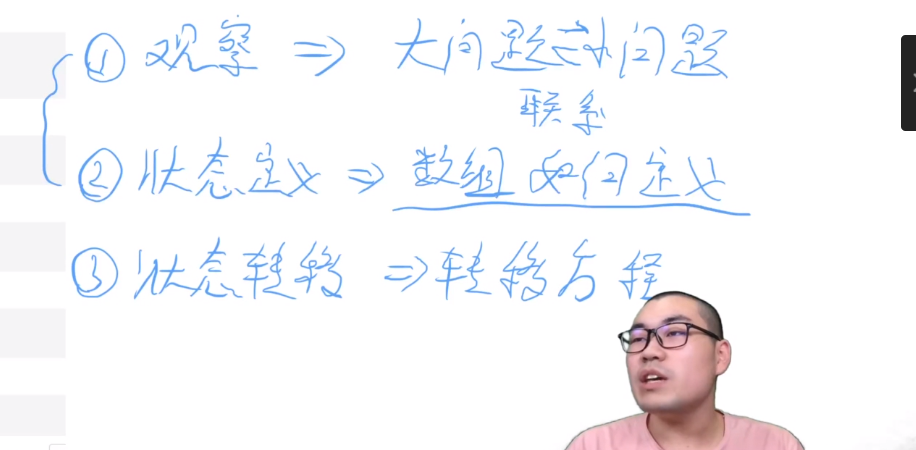 ① 观察 ⇒ 大问题与小问题
联系
② 状态定义 ⇒ 数组如何定义
③ 状态转移 ⇒ 转移方程